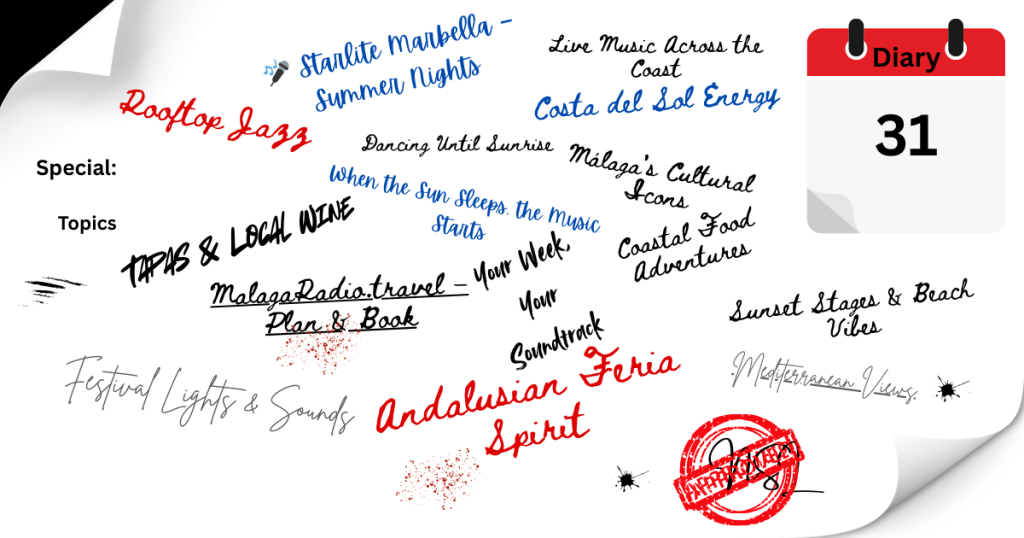 🎤 Starlite Marbella –
Summer Nights
Live Music Across the
Coast
Diary
31
Rooftop Jazz
Costa del Sol Energy
Dancing Until Sunrise
Málaga's Cultural
Icons
Special:
When the Sun Sleeps, the Music
Starts
Topics
TAPAS & LOCAL WINE
Coastal Food
Adventures
MalagaRadio.travel –
Plan & Book
Your Week,
Your
Soundtrack
Sunset Stages & Beach
Vibes
Festival Lights & Sounds
Andalusian Feria
Spirit
Mediterranean Views.